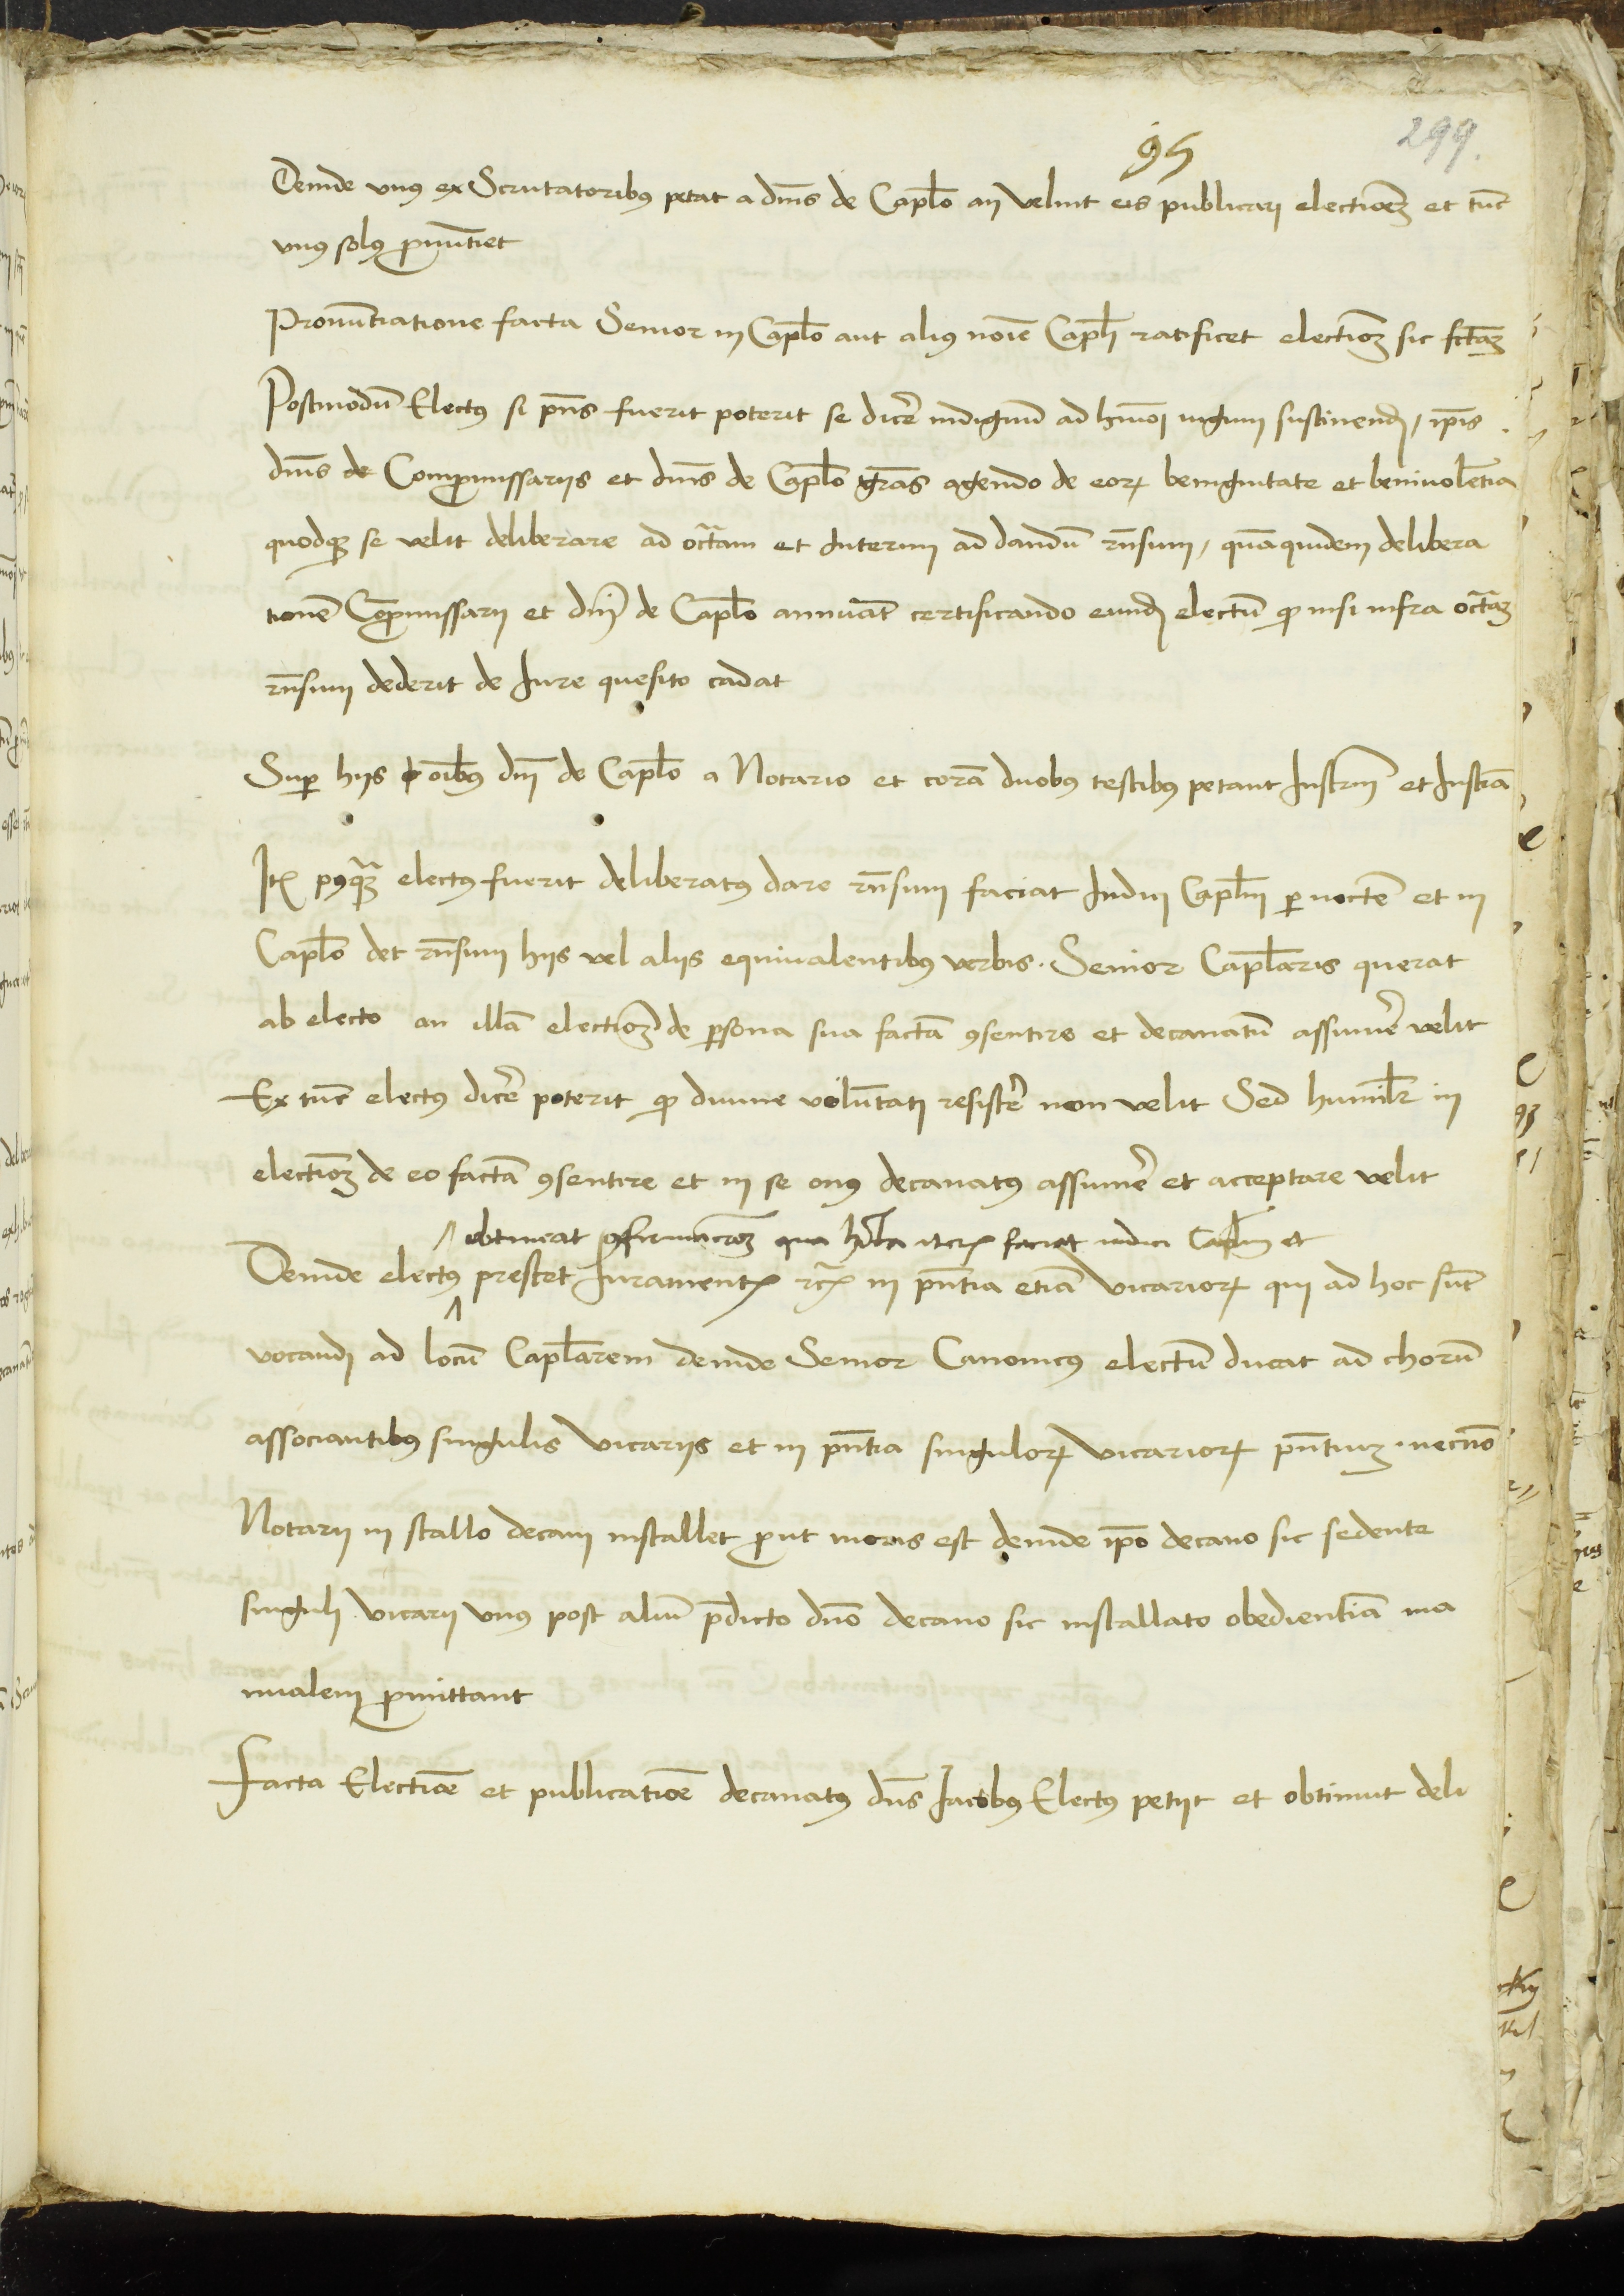 95
299.
Deinde vnus ex Scrutatoribus petat a dnis de Caplo an velint eis publicari electionem et tunc
vnus solus pronuntiet
Pronuntiatione facta Senior in Caplo aut alius noie Capli ratificet electionem sic fctam
Postmodum Electus si pns fuerit poterit se dicere indignum ad hmoi iugum sustinend, ipis
dnis de Compromissariis et dnis de Caplo gras agendo de eorum benignitate et beniuolentia
quodque se velit deliberare ad octauam et Interim ad dandum rnsum, quamquidem delibera
tionem Compromissarii et dni de Caplo annuant certificando eundem electum quod nisi infra octauam
rnsum dederit de Iure quesito cadat
Super hiis oibus dni de Caplo a Notario et coram duobus testibus petant Instrm et Instra
Item postquam electus fuerit deliberatus dare rnsum faciat Indici Caplm per noctem et in
Caplo det rnsum hiis vel aliis equiualentibus verbis. Senior Caplaris querat
ab electo an illam electionem de persona sua factam consentire et decanatum assumere velit
Ex tunc electus dicere poterit quod diuine voluntati resistere non velit Sed humilr in
electionem de eo factam consentire et in se onus decanatus assumere et acceptare velit
obtineat confirmacionem qua hita iterum faciat indici Caplm et
Deinde electus prestet Iuramentum in pntia etiam vicariorum qui ad hoc sunt
vocandi ad locum Caplarem deinde Senior Canonicus electum ducat ad chorum
associantibus singulis vicariis et in pntia singulorum vicariorum pntium necnon
Notarii in stallo decani installet prout moris est deinde ipo decano sic sedente
singuli vicarii vnus post alium predicto dno decano sic installato obedientiam ma
nualem promittant
Facta Electione et publicatione decanatus dns Iacobus Electus petiit et obtinuit deli